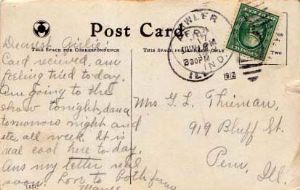 Post Card
THIS SPACE FOR CORRESPONDENCE
THIS SPACE FOR ADDRESS ONLY
FOWLER
IND.
8 30 PM
Dearest Airlie
Card received, am
feeling tired today.
Am going to the
show tonight, dance
tomorrow night and
etc all week. It is
real cool here to day
Ans my letter real
soon. Love to both from
Mrs. G. L. Thieman,
919 Bluff St.
Peru, Ill.